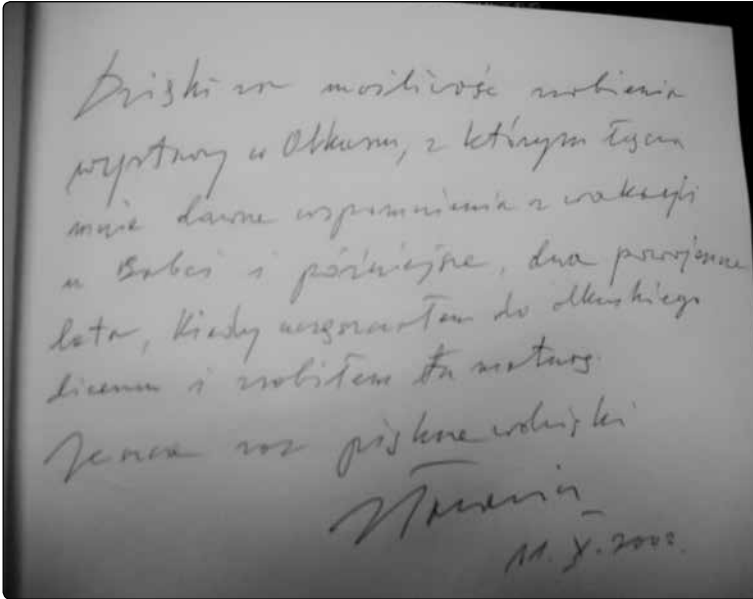 Dzięki za możliwość zrobienia
wystawy w Olkuszu, z którym łączą
mnie dawne wspomnienia z wakacji
u Babci i późniejsze, dwa powojenne
lata, kiedy uczęszczałem do olkuskiego
liceum i zrobiłem tu maturę.
Jeszcze raz piękne dzięki
11. X. 2002.